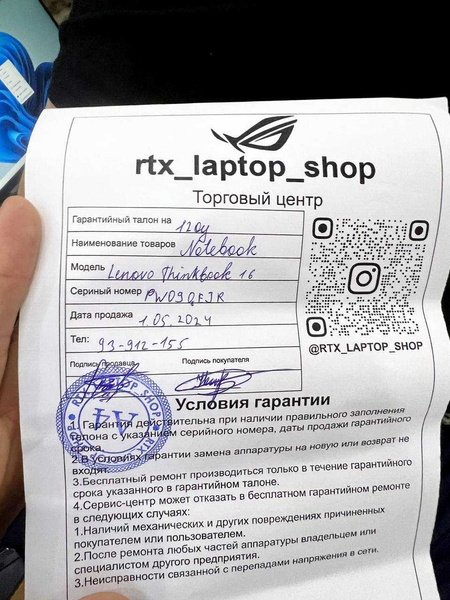 rtx_laptop_shop
Торговый центр
Гарантийный талон на
Наименование товаров Notebook
Модель Lenovo Thinkbook 16
Сериный номер PW09QFJR
Дата продажа 1.05.2024
Тел: 93-912-155
Подпись продавца Подпись покупателя
@RTX_LAPTOP_SHOP
Условия гарантии
1. Гарантия действительна при наличии правильного заполнения
талона с указанием серийного номера, даты продажи гарантийного
срока.
2.В условиях гарантии замена аппаратуры на новую или возврат не
входят.
3.Бесплатный ремонт производиться только в течение гарантийного
срока указанного в гарантийном талоне.
4.Сервис-центр может отказать в бесплатном гарантийном ремонте
в следующих случаях:
1.Наличий механических и других повреждениях причиненных
покупателем или пользователем.
2.После ремонта любых частей аппаратуры владельцем или
специалистом другого предприятия.
3.Неисправности связанной с перепадами напряжения в сети.